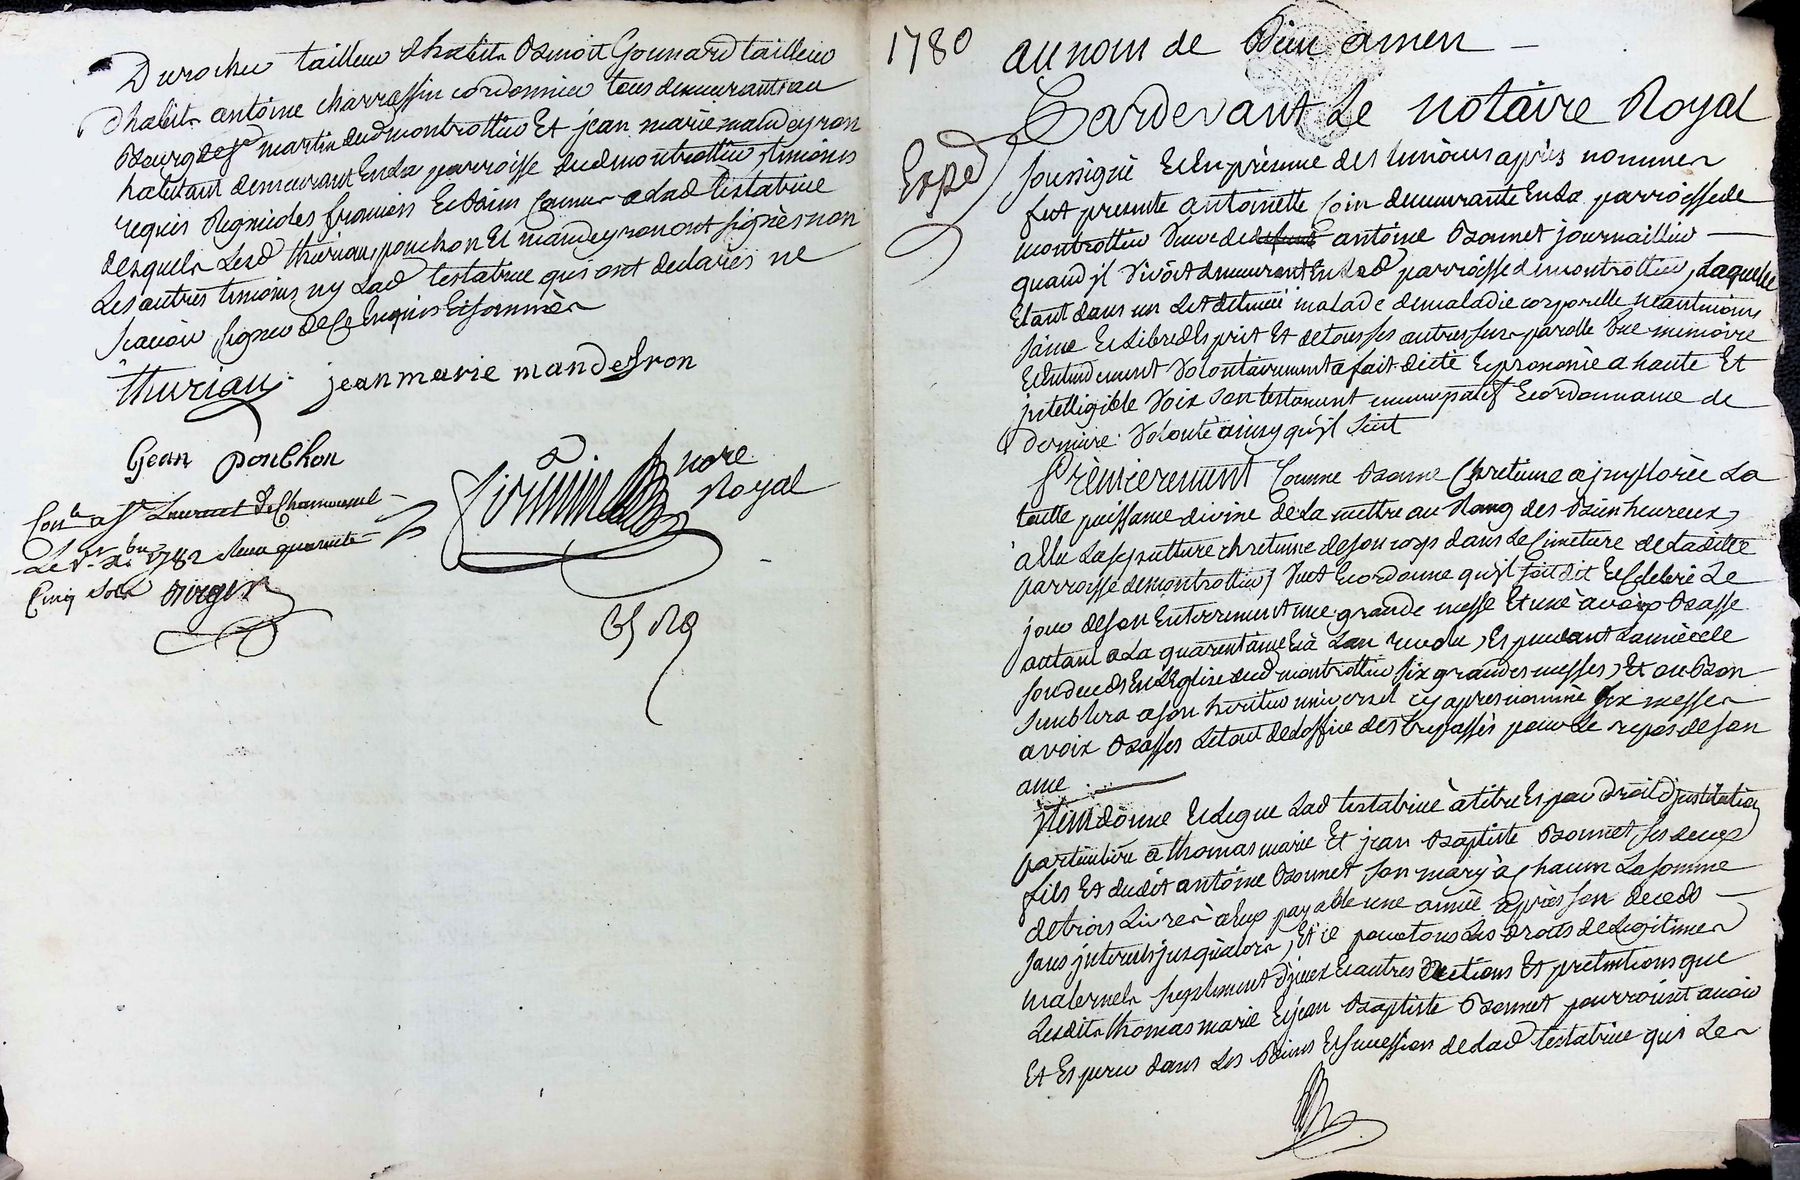 Durocher tailleur d'habits Benoit Gonnard tailleur
d'habits antoine charrassin cordonnier tous demeurants au
Bourg de st martin dud montrottier Et jean marie mandeyron
habitant demeurant En la parroisse dud montrottier, temoins
requis Regnicoles françois Et Bien connus a lad testatrice
desquels lesd thivrian, ponchon Et mandeyron ont signés non
Les autres temoins ny Lad testatrice qui ont declarés ne
scavoir signer de ce Enquis Et sommés
jean marie mandeyron
Gean ponchon
nore
Royal
Con.le a st Laurent De Chamousset
Le 1782 Reçu quarente
Cinq sols
1780
au nom de Dieu amen
Pardevant Le notaire Royal
Exped
soussigné Et En présence des temoins après nommés
fut presente antoinette Coin demeurante En la parroisse de
montrottier veuve de antoine Bonnet journaillier
quand il vivoit demeurant En lad parroisse de montrottier, Laquelle
Etant dans un Lit detenüe malade de maladie corporelle neantmoins
saine Et Libre d'Esprit Et de tous ses autres sens parolle vue memoire
Et Entendement volontairement a fait dicté Et prononcé a haute Et
intelligible voix son testament nuncupatif Et ordonnance de
derniere volonté ainsy qu'il suit
Prèmierement Comme Bonne Chretienne a jmplorée La
toutte puissance divine de La mettre au Rang des Bienheureux,
Elle La sepulture chretienne de son corps dans Le Cimetiere de Ladite
parroisse de montrottier, veut Et ordonne qu'il soit dit Et Celebré Le
jour de son Enterrement une grande messe Et une a voix Basse
autant a La quarentaine Et à L'an revolu, Et pendant L'année de
son deceds En L'Eglise dud montrottier six grandes messes, Et ou Bon
semblera a son heritier universel cy apres nommé six messes
a voix Basses Le tout de L'office des trepassés pour Le repos de son
ame
jtem donne Et Legue Lad testatrice à titre Et par droit d'institution
particuliere a thomas marie Et jean Baptiste Bonnet ses deux
fils Et dudit antoine Bonnet son mary à chacun La somme
de trois Livres à Eux payable une année après son deceds
sans jnterets jusqu'alors, Et ce pour tous Les droits de Legitimes
maternels suplement d'jcelles Et autres actions Et pretentions que
Lesdits thomas marie Et jean Baptiste Bonnet pourroient avoir
Et Esperer dans Les Biens Et succession de Lad testatrice qui Les